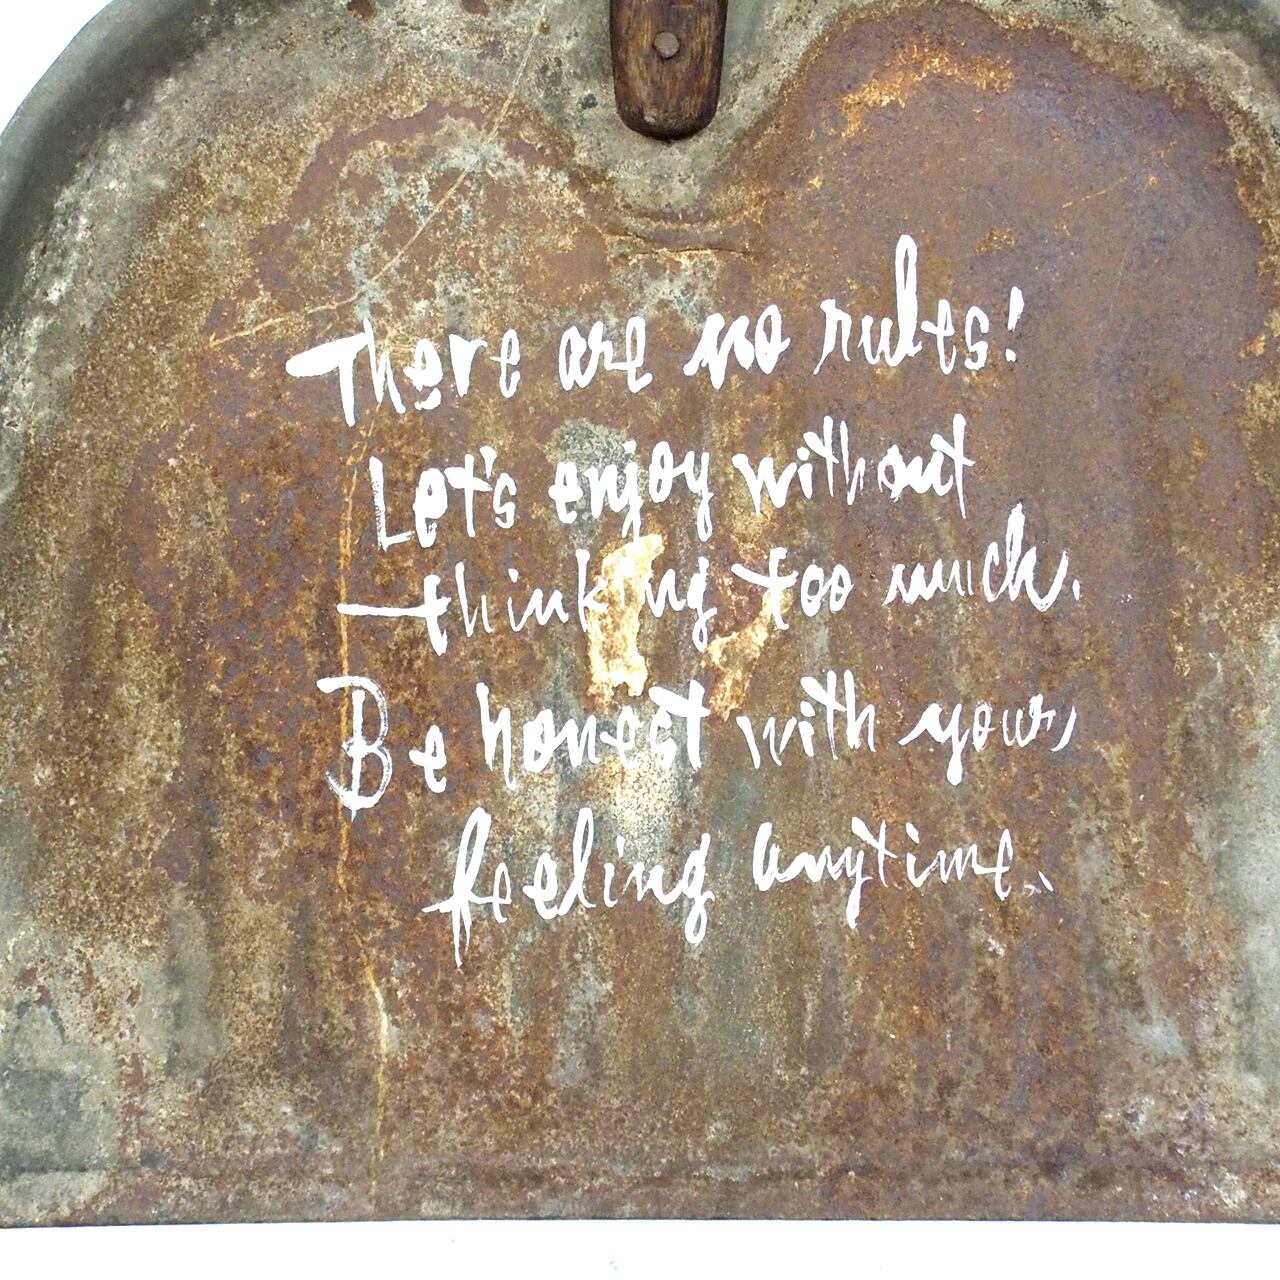 There are no rules!
Let's enjoy without
thinking too much.
Be honest with your
feeling anytime.